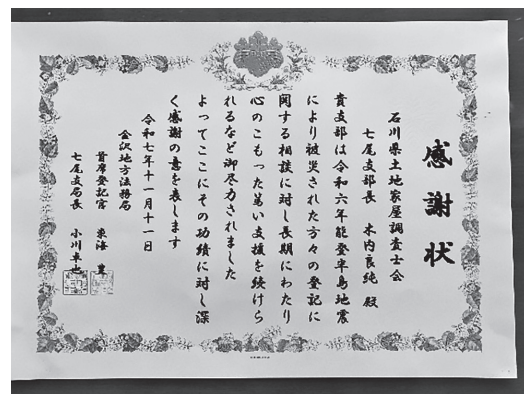 感謝状
石川県土地家屋調査士会
七尾支部長 木内良純 殿
貴支部は令和六年能登半島地震
により被災された方々の登記に
関する相談に対し長期にわたり
心のこもった篤い支援を続けら
れるなど御尽力されました
よってここにその功績に対し深
く感謝の意を表します
令和七年十一月十一日
金沢地方法務局
首席登記官 東海 豊
七尾支局長 小川卓也